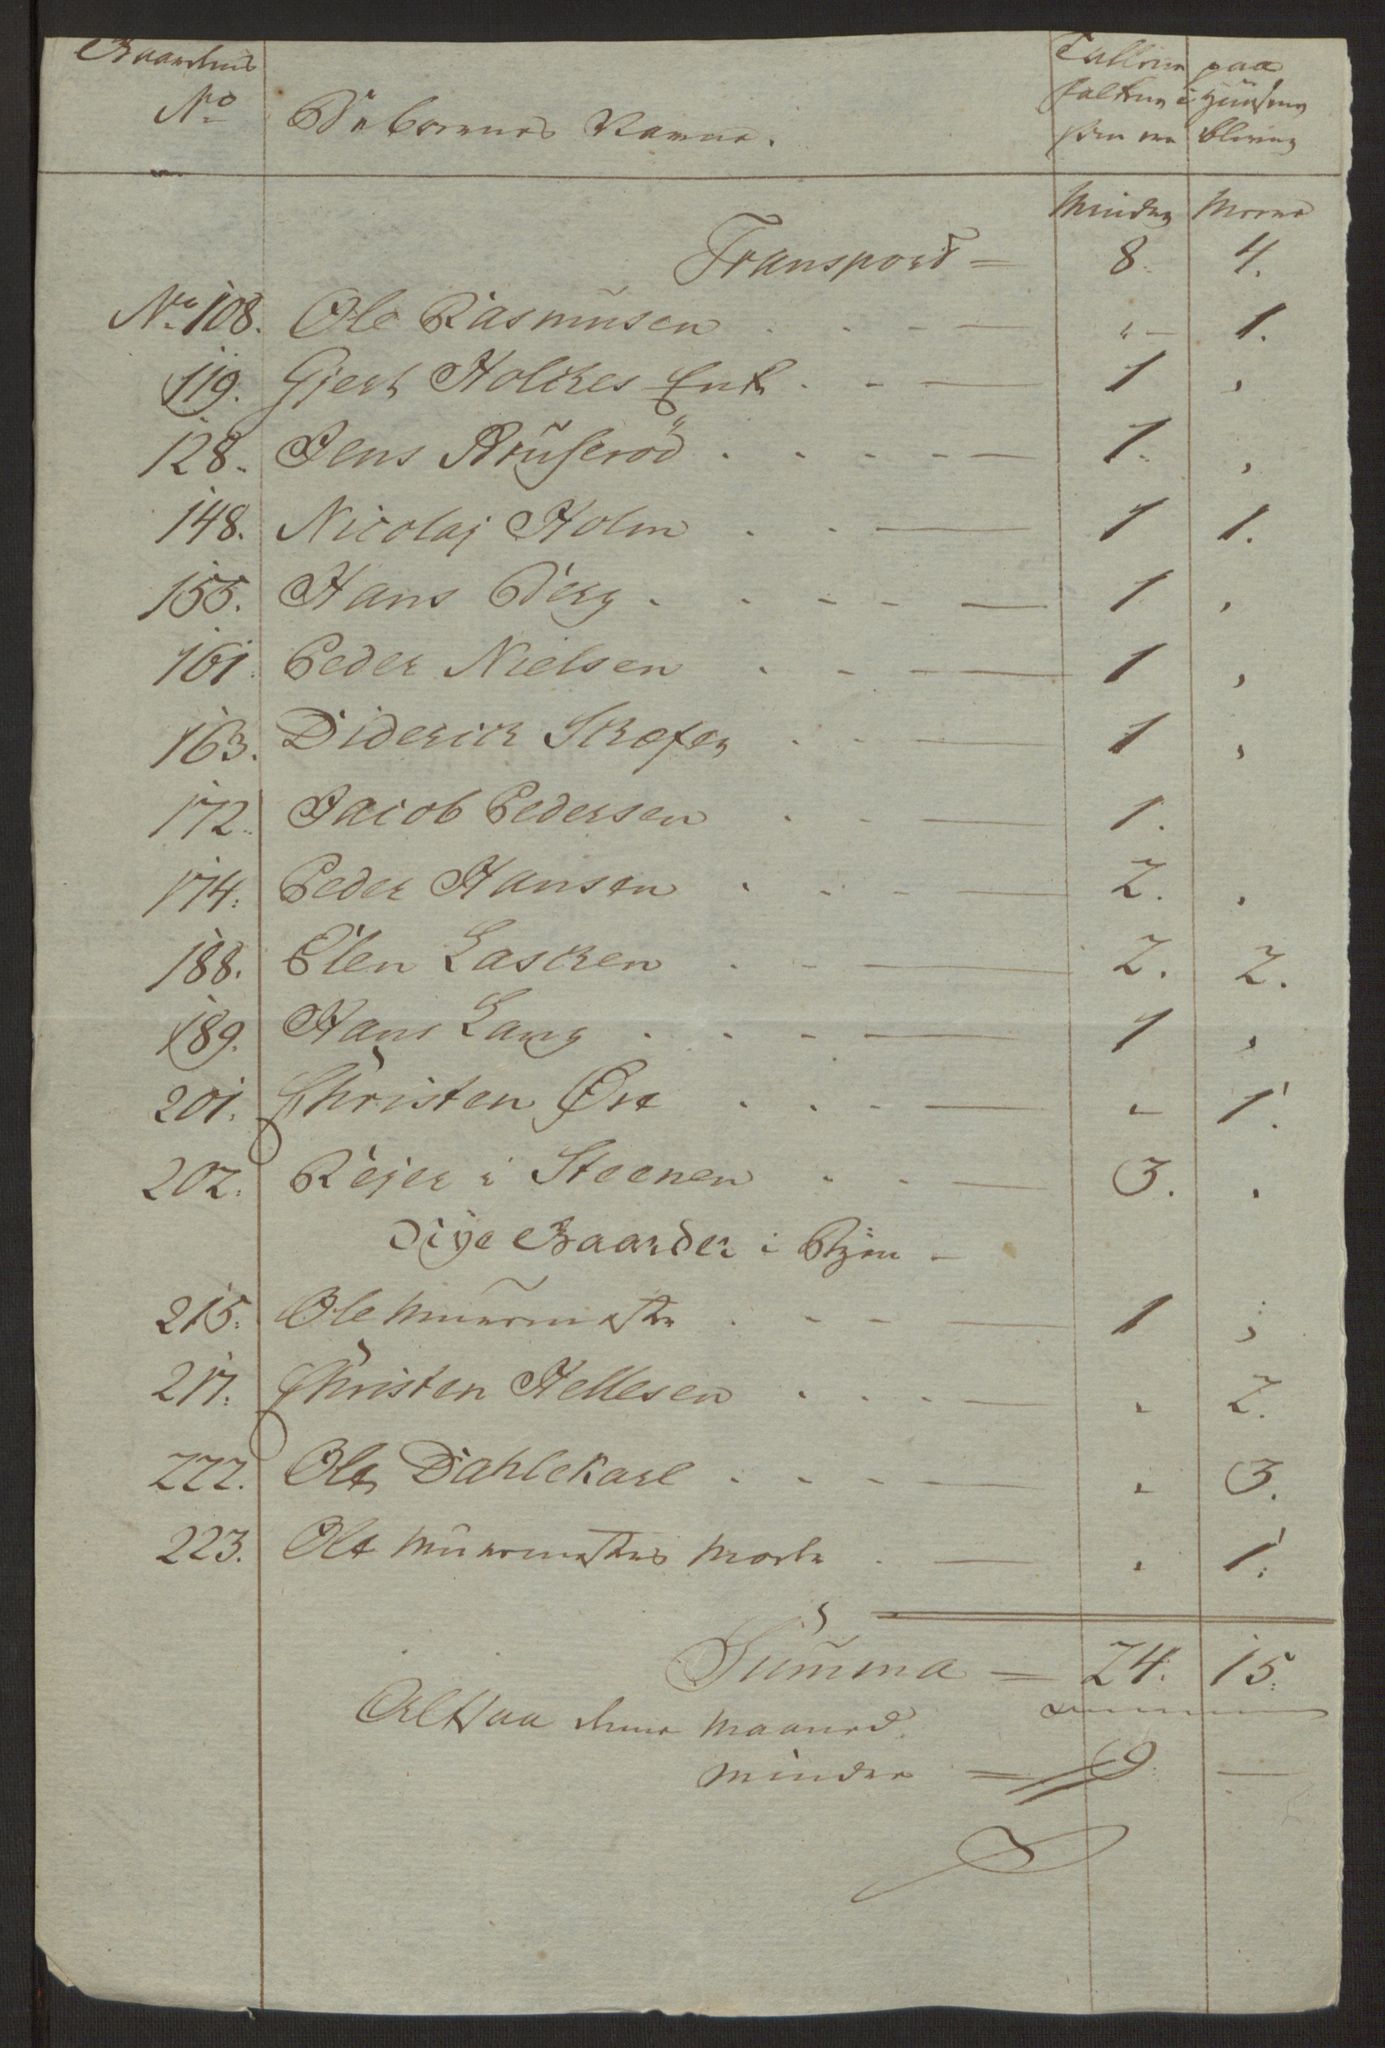 Gaardens Tallene paa
No Beboernes Navne. Folkene i Huusene
som ere blevne
Mindre Meere
Transport = 8. 4.
No 108. Ole Rasmusen . . - — „ - 1.
119. Gjert Holckes Enk . - — 1 ,
128. Jens Pruserød . . . - - — 1. ,
148. Nicolaj Holm . . - — 1 1.
155. Hans Berg . . - - - — 1 ,
161. Peder Nielsen . - - — 1 ,
163. Diderich Skofer . - - — 1 ,
172. Jacob Pedersen . - — 1.
174. Peder Hansen . . - — 2. .
188. Elen Lascken . - — 2. 2.
189. Hans Lang . . - - — 1 ,
201. Christen Øre . . - — „ 1.
202. Rejer i Steenen . . - — 3. .
Nye Gaarder i Byen -
215. Ole Muurmester . - - — 1 ,
217. Christen Hellesen . . . - — „ 2.
222. Ole Dahlekarl . - - - — „ 3.
223. Ole Muurmesters Moder . — „ 1.
Summa = 24. 15.
Altsaa denne Maaned
Mindre = 9. —